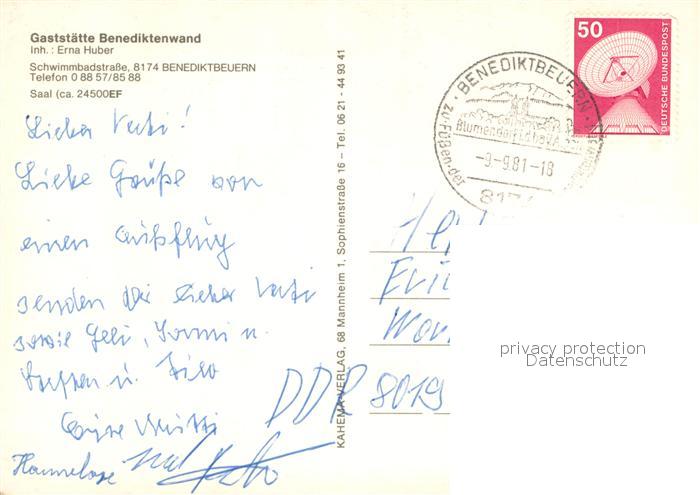 Gaststätte Benediktenwand
Inh.: Erna Huber
Schwimmbadstraße, 8174 BENEDIKTBEUERN
Telefon 0 88 57/85 88
Saal (ca. 24500EF
Lieber Vati!
Liebe Grüße von
einem Ausflug
senden Dir lieber Vati
sowie Geli,
Steffen u.
Eure Mutti
Hannelore und
KAHEMA-VERLAG, 68 Mannheim 1, Sophienstraße 16 – Tel. 06 21 - 44 93 41
50
DEUTSCHE BUNDESPOST
BENEDIKTBEUERN
Blumendorf
zu Füßen der
-9.-9.81-18
817
DDR 8019
privacy protection
Datenschutz